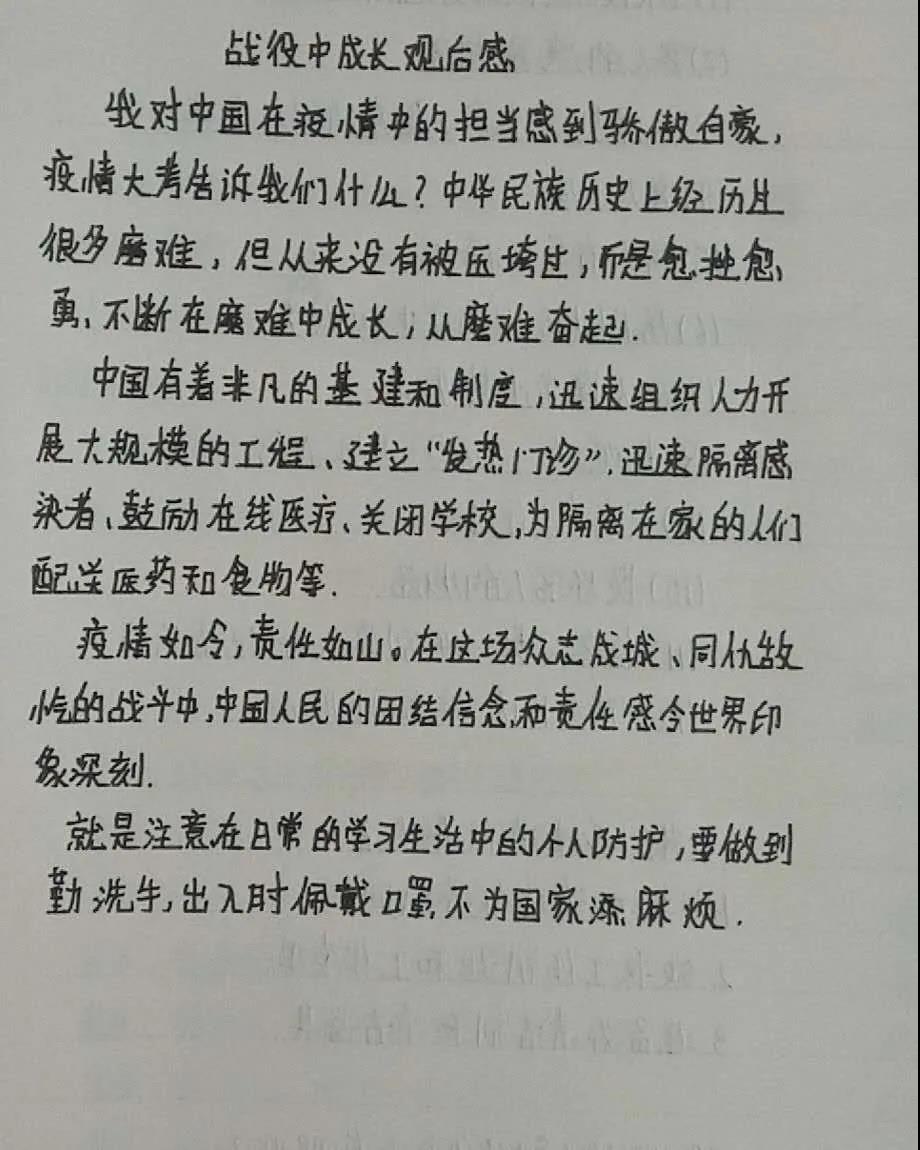 战役中成长观后感
我对中国在疫情中的担当感到骄傲自豪,
疫情大考告诉我们什么?中华民族历史上经历过
很多磨难,但从来没有被压垮过,而是愈挫愈
勇、不断在磨难中成长,从磨难奋起.
中国有着非凡的基建和制度,迅速组织人力开
展大规模的工程、建立“发热门诊”.迅速隔离感
染者、鼓励在线医疗、关闭学校,为隔离在家的人们
配送医药和食物等.
疫情如令,责任如山。在这场众志成城、同仇敌
忾的战斗中,中国人民的团结信念,和责任感令世界印
象深刻.
就是注意在日常的学习生活中的个人防护,要做到
勤洗手,出入时佩戴口罩,不为国家添麻烦.